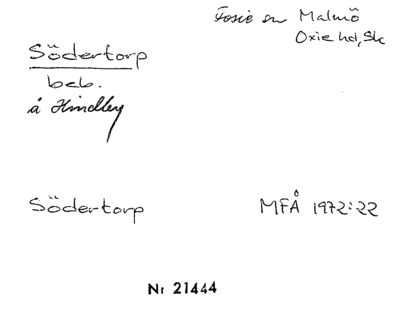 Fosie sn Malmö
Oxie hd, Sk
Södertorp
beb.
å Hindby
Södertorp MFÅ 1972:22
Nr 21444